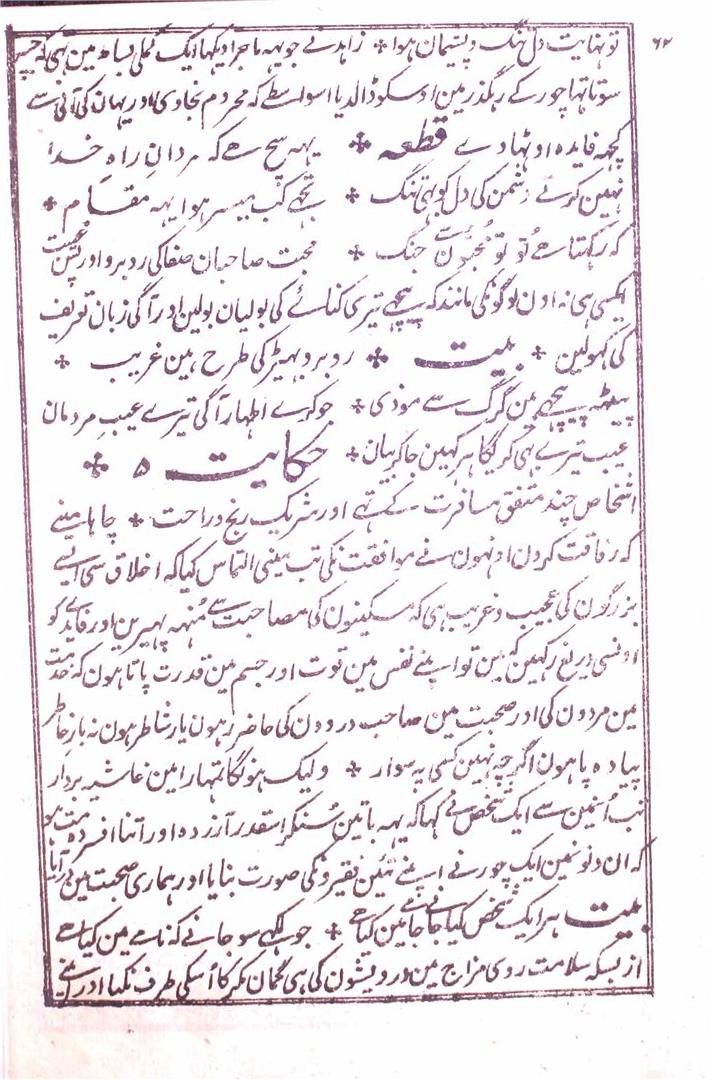 ۶۲
تو نہایت دل تنگ و پشیمان ہوا ٭ زاہد نے جو یہہ ماجرا دیکہا ایک کملی بساط مین تہی کہ جسپر
سوتا تہا چور کے رہگذر مین اوسکو ڈالدیا اسواسطے کہ محروم نجاوی اور یہان کی آنی سے
کچہہ فایدہ اوٹہاوے قطعہ ٭ یہہ سچ ہے کہ مردانِ راہِ خدا
نہین کرتے دشمن کی دل کو بہی تنگ ٭ تجہے کب میسر ہوا یہہ مقام ٭
کہ رکہتا ہے تو تو محبّون سے جنگ ٭ محبت صاحبان صفا کی روبرو اور پس غیبت
ایکسی ہی نہ اون لوگونکی مانند کہ پیچہے تیری کنائے کی بولیان بولین اور آگی زبان تعریف
کی کہولین ٭ بیت ٭ روبرو بہیڑ کی طرح ہین غریب ٭
پیٹہہ پیچہے ہین گرگ سے موذی ٭ جو کرے اظہار آگی تیرے عیبِ مردمان
عیب تیرے بہی کریگا ہر کہین جاکر بیان ٭ حکایت ۵ ٭
اشخاص چند متفق مسافرت کے تہے اور شریک رنج و راحت ٭ چاہا مینے
کہ رفاقت کرون اونہون نے موافقت نکی تب مینی التماس کیا کہ اخلاق سی ایسے
بزرگون کی عجیب و غریب ہی کہ مسکینون کی مصاحبت سے مُنہہ پہیرین اور فایدے کو
اونسی دریغ رکہین کہ مین تو اپنے نفس مین قوت اور جسم مین قدرت پاتا ہون کہ خدمت
مین مردون کی اور صحبت مین صاحب دردون کی حاضر رہون یار شاطر ہون نہ بار خاطر
پیادہ پا ہون اگرچہ نہین کسی پہ سوار ٭ ولیک ہونگا تمہارا مین غاشیہ بردار
تب اُنمین سے ایک شخص نے کہا کہ یہہ باتین سُنکر اسقدر آزردہ اور اتنا افسردہ مت ہو
کہ ان دنونمین ایک چور نے اپنے تئین فقیرونکی صورت بنایا اور ہماری صحبت مین در آیا
بیت ہر ایک شخص کیا جانے جامے مین کیا ہے ٭ جو لکہے سو جانے کہ نامے مین کیا ہے
از بسکہ سلامت روی مزاج مین درویشون کی ہی گمان مکر کا اُسکی طرف نکیا اور اپنے